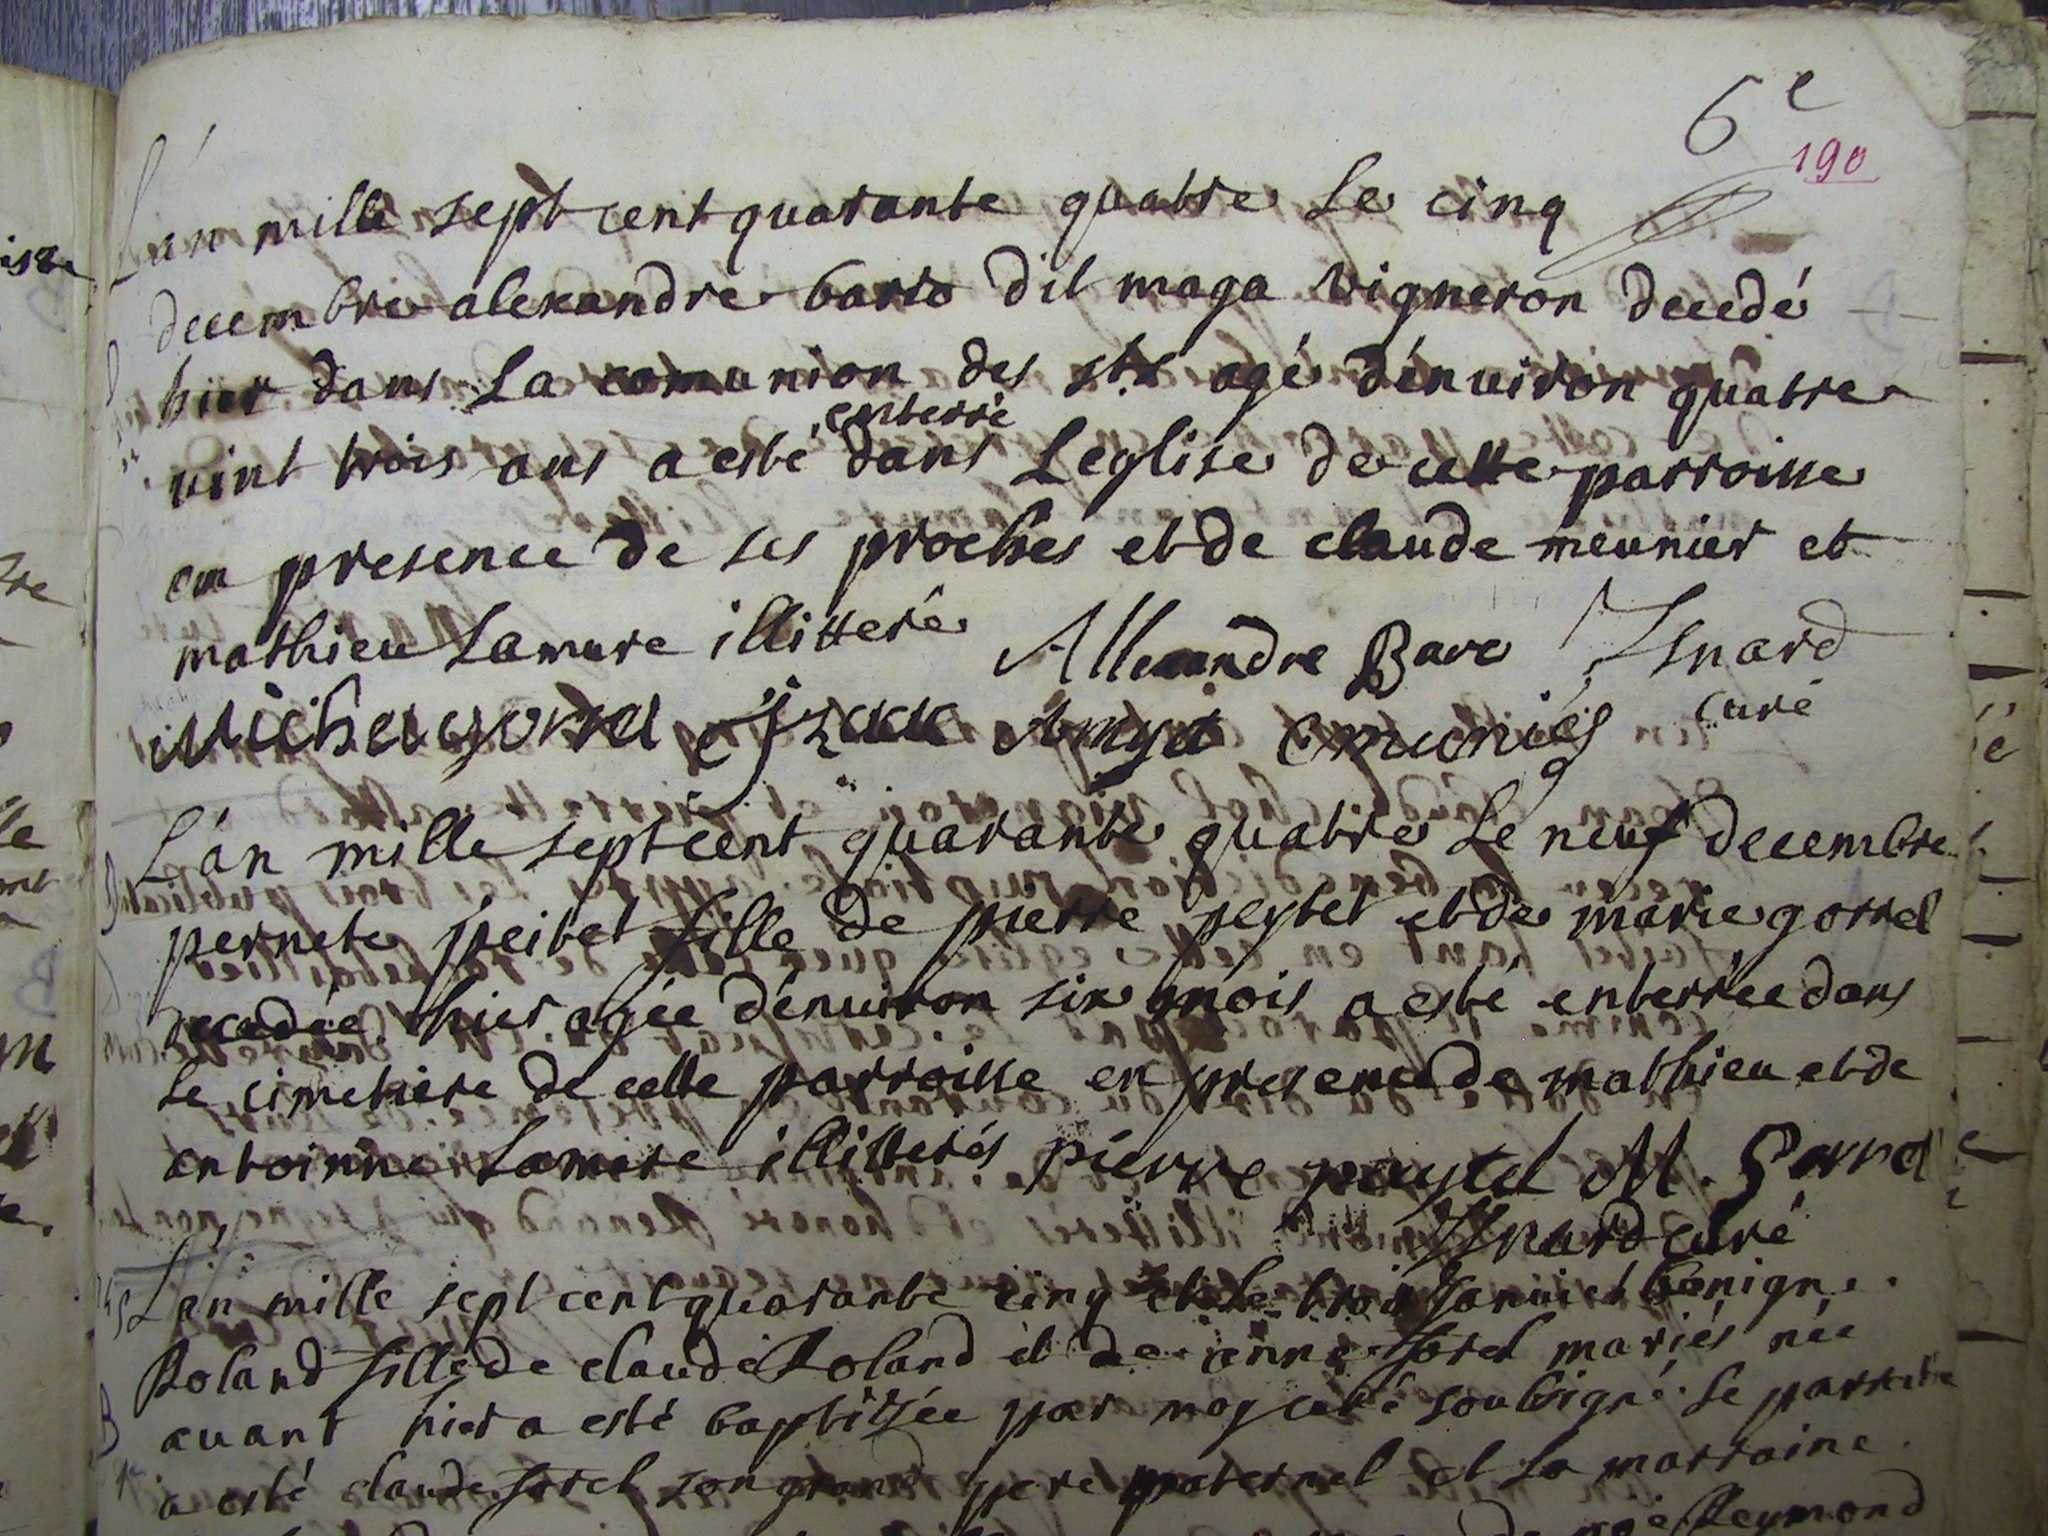 6e
190
L'an mille sept cent quarante quatre Le cinq
decembre alexandre baro dit maga vigneron decedé
hier dans La comunion des sts agé d'enuiron quatre
vint trois ans a esté enterré dans L'eglise de cette parroisse
en presence de ses proches et de claude meunier et
mathieu Lamure illitteré Allexandre Baro Isnard
Michel gorrel Izaac Amyot cmuniés curé
L'an mille sept cent quarante quatre Le neuf decembre
pernete peitel fille de pierre peytel et de marie gorrel
decedée hier agée d'enuiron six mois a esté enterrée dans
Le cimetiere de cette parroisse en presence de mathieu et de
antoinne Lamure illitterés pierre paytel M. Gorrel
Isnard curé
L'an mille sept cent quarante cinq et Le trois Januier benigne
Roland fille de claude Roland et de anne sorel mariés née
auant hier a esté baptizée par moy curé soubsigné Le parrain
a esté claude sorel son grand pere maternel et La marraine
Reymond